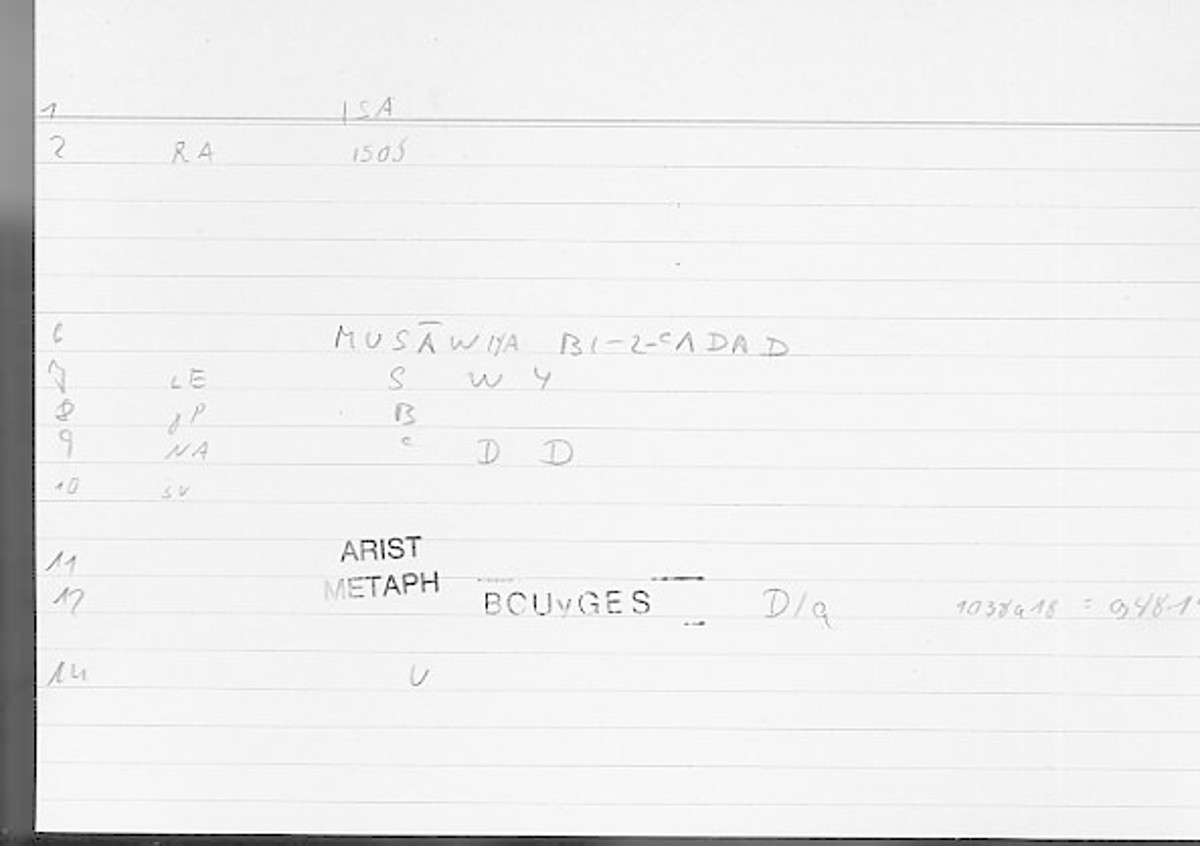 1 ISA
2 RA 1505
6 MUSĀWIYA BI-L-ᶜADAD
7 LE S W Y
8 gP B
9 NA ᶜ D D
10 SU
ARIST
11
METAPH
12 BOUyGES D/a 1038a18 =
14 U